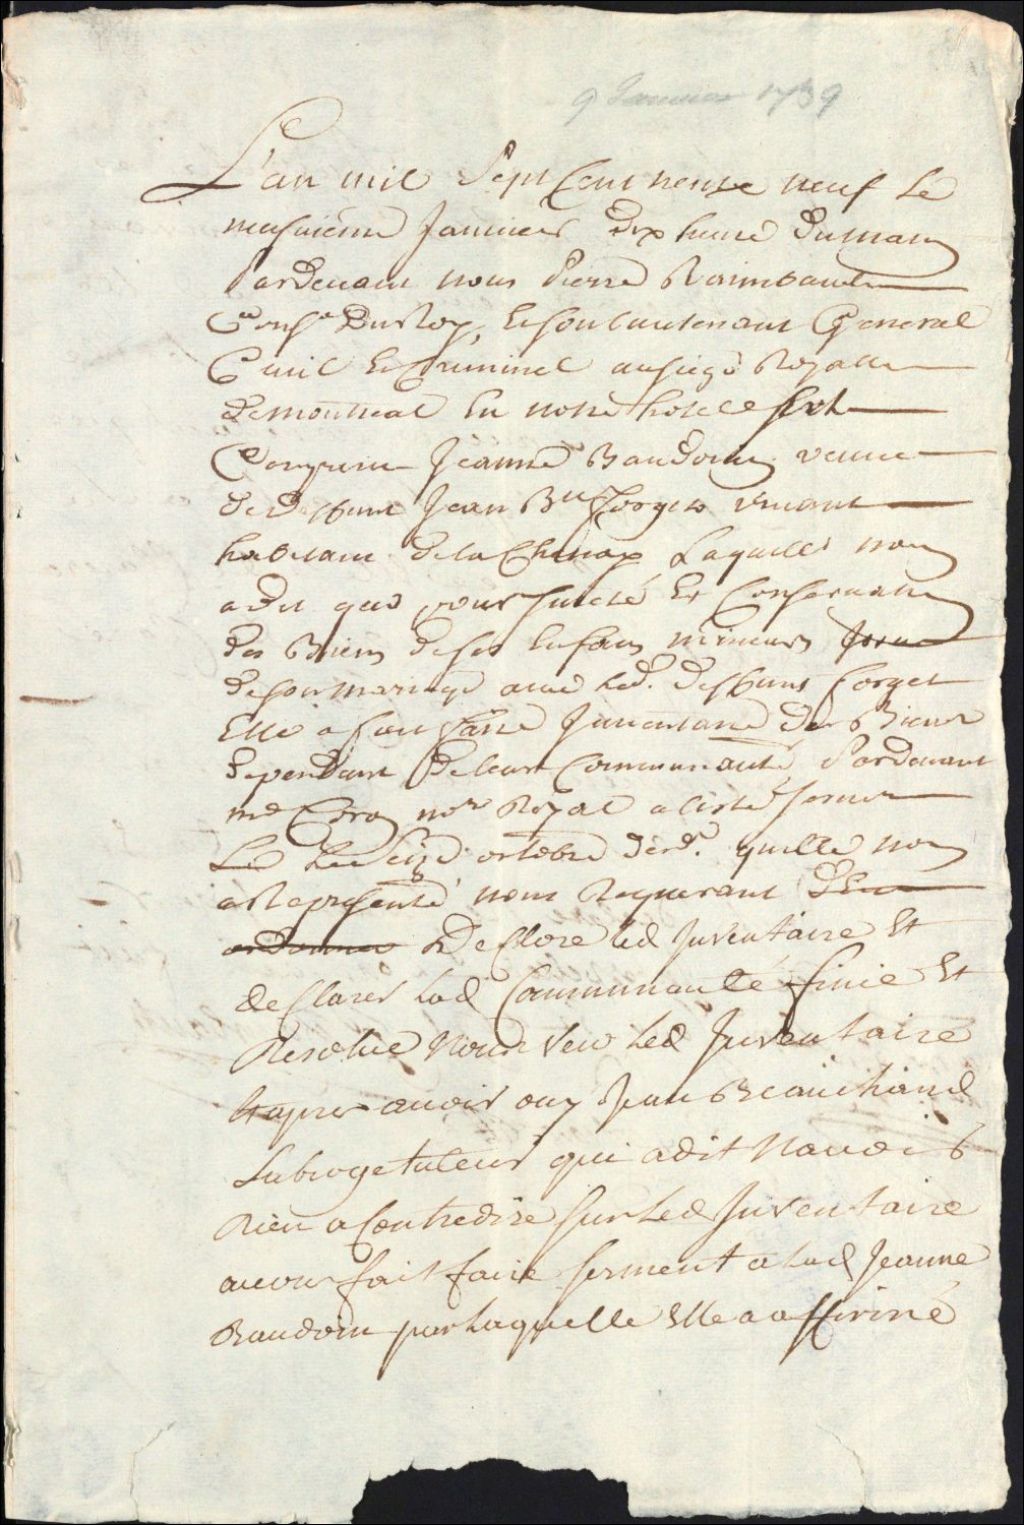 9 Janvier 1739
L'an mil Sept Cent trente neuf Le
neufvieme Janvier dix heure Du matin
Pardevant nous Pierre Raimbault
Consr Du Roy, Lieutenant General
Civil Et Criminel au siege Royalle
de montreal En notre hotel est
Comparu Jeanne Baudoin veuve
de deffunt Jean Bte Forget vivant
habitant de la Chenay Laquelle nous
a dit que pour sureté Et Conservation
des Biens de ses Enfans mineurs
de son mariage avec Led. deffunt forget
Elle a fait faire Inventaire des Biens
dependant de leur Communauté Pardevant
me Coron nore Royal a l'isle Jesus
Le Seize octobre derer. qu'elle nous
a Representé nous Requerant
ordonner De Clore led Inventaire Et
declarer Lad Communauté finie Et
Resolue Nous veu Led Inventaire
Et apres avoir ouy Jean Beauchand
Subroge tuteur qui a dit N'avoir
Rien a Contredire sur Led Inventaire
avons fait faire serment a Lad Jeanne
Baudoin par Laquelle Elle a affirmé